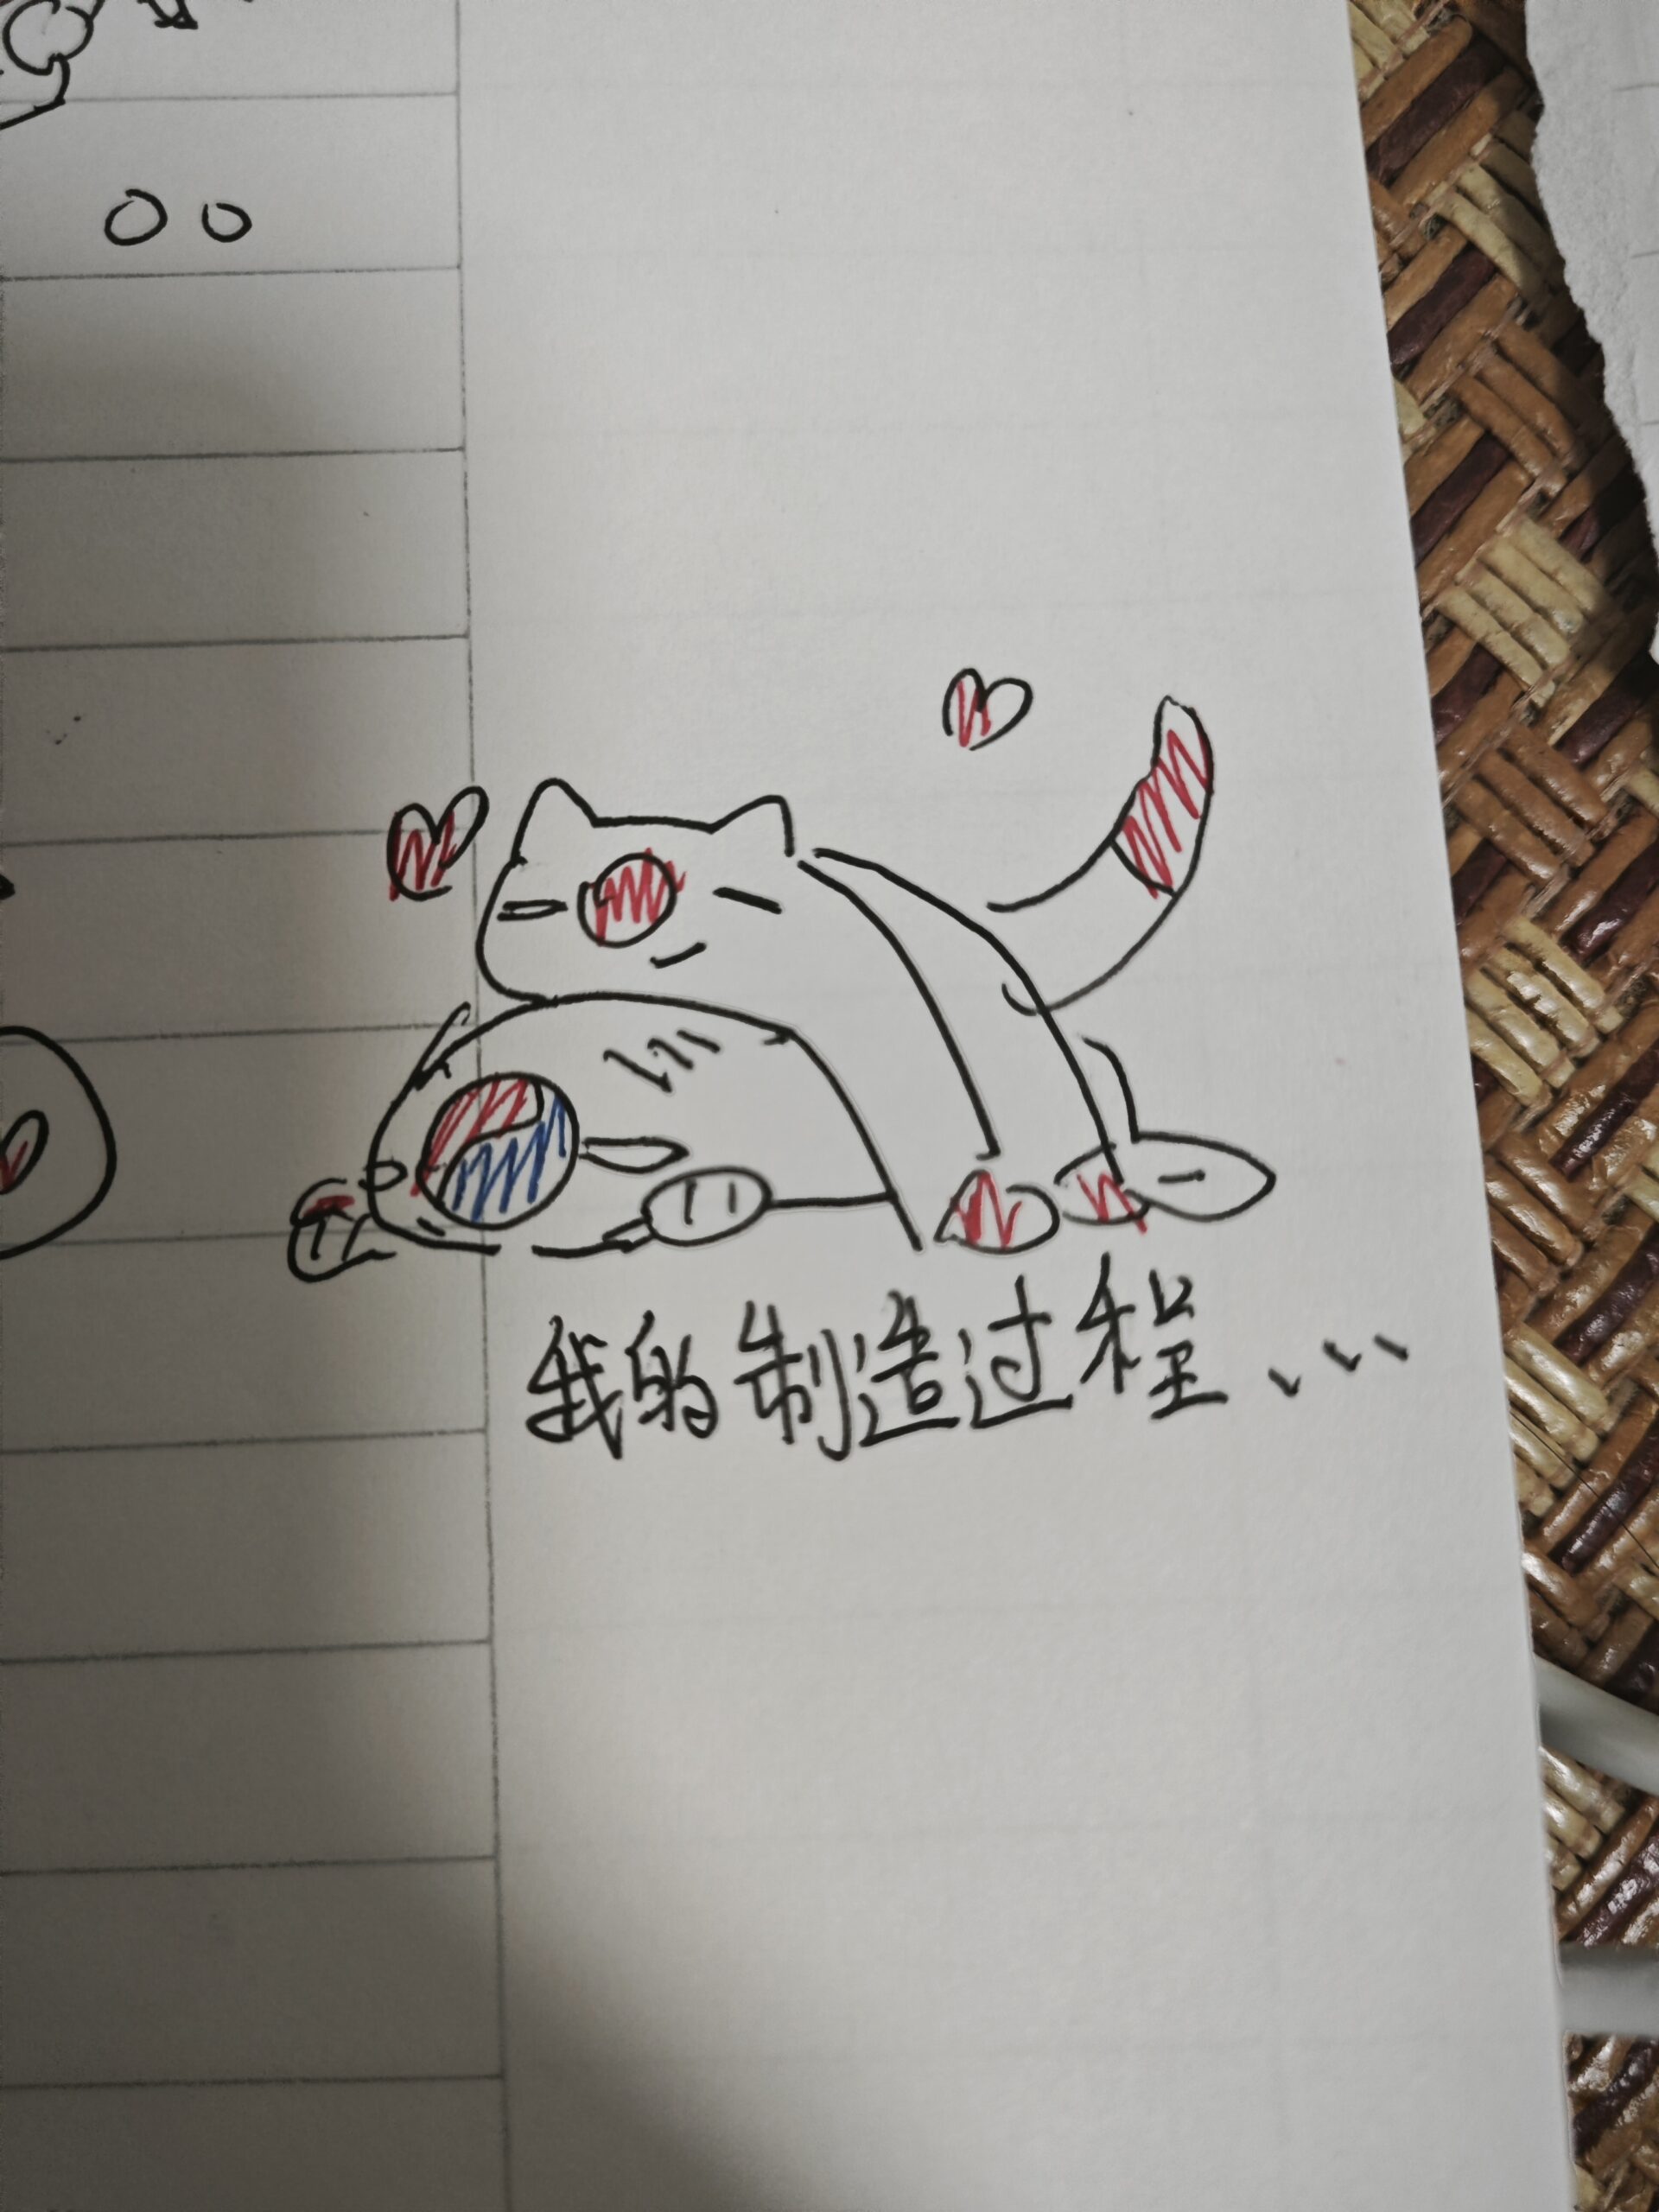 我的制造过程...